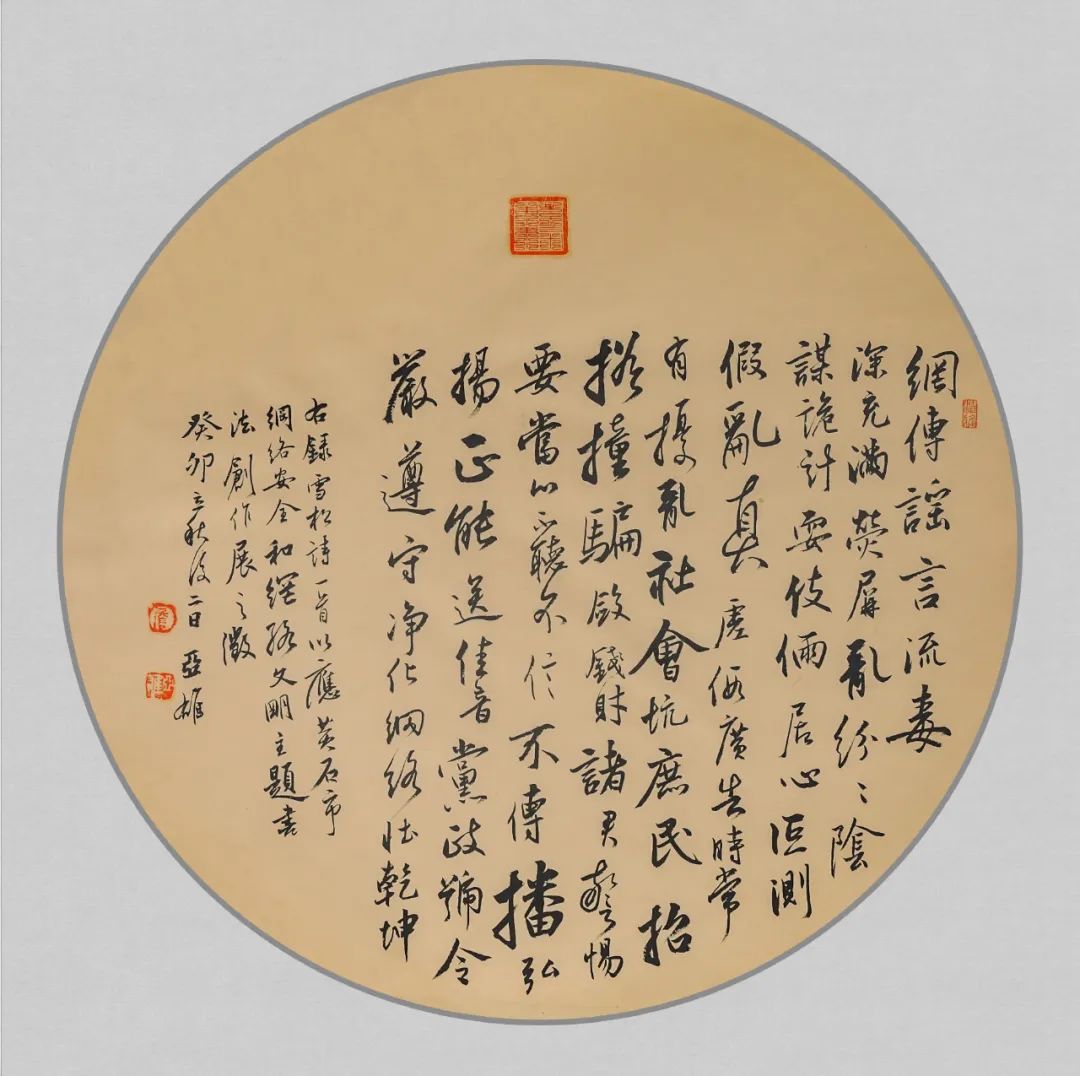 網傳謠言流毒
深充滿熒屏亂紛〻陰
謀詭計耍伎倆居心叵測
假亂真虛假廣告時常
有擾亂社會坑庶民招
搖撞騙斂錢財諸君警惕
要當心不聽不信不傳播弘
揚正能送佳音黨政號令
嚴遵守净化網絡壯乾坤
右錄雪松詩一首以應黄石市
網絡安全和網絡文明主題書
法創作展之徵
癸卯立秋後二日亞雄